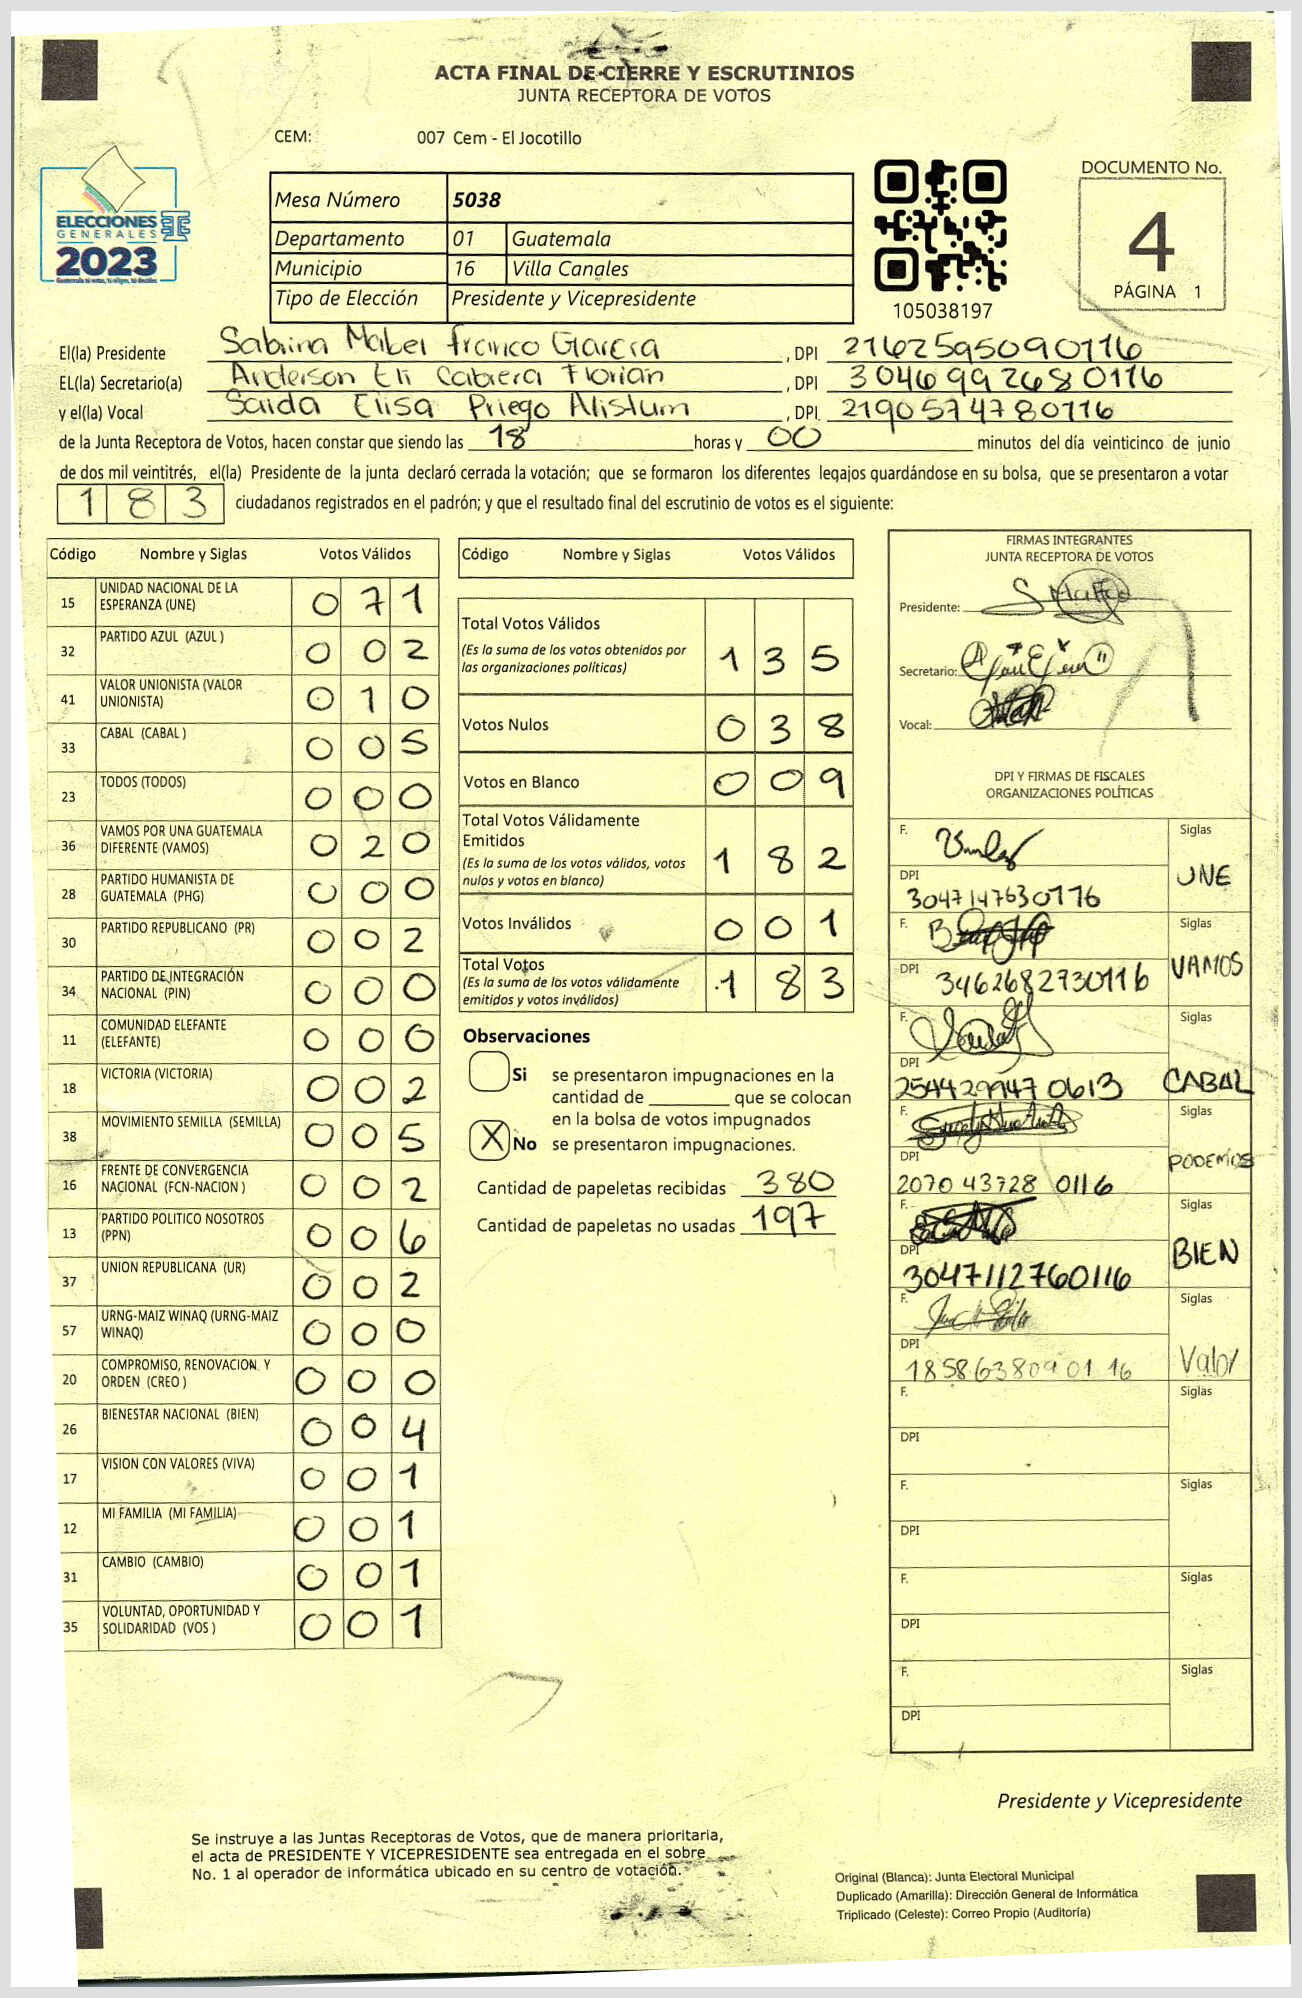 ACTA FINAL DE CIERRE Y ESCRUTINIOS
JUNTA RECEPTORA DE VOTOS
CEM: 007 Cem - El Jocotillo
ELECCIONES
GENERALES
2023
Mesa Número 5038
Departamento 01 Guatemala
Municipio 16 Villa Canales
Tipo de Elección Presidente y Vicepresidente
105038197
DOCUMENTO No.
4
PÁGINA 1
El(la) Presidente Sabrina Mabel Franco Garcia , DPI 2162595090116
EL(la) Secretario(a) Anderson Eli Cabrera Florian , DPI 3046992680116
y el(la) Vocal Saida Elisa Priego Alistum , DPI 2190574780116
de la Junta Receptora de Votos, hacen constar que siendo las 18 horas y 00 minutos del día veinticinco de junio
de dos mil veintitrés, el(la) Presidente de la junta declaró cerrada la votación; que se formaron los diferentes legajos quardándose en su bolsa, que se presentaron a votar
183 ciudadanos registrados en el padrón; y que el resultado final del escrutinio de votos es el siguiente:
Código Nombre y Siglas Votos Válidos
15 UNIDAD NACIONAL DE LA ESPERANZA (UNE) 071
32 PARTIDO AZUL (AZUL ) 002
41 VALOR UNIONISTA (VALOR UNIONISTA) 010
33 CABAL (CABAL ) 005
23 TODOS (TODOS) 000
36 VAMOS POR UNA GUATEMALA DIFERENTE (VAMOS) 020
28 PARTIDO HUMANISTA DE GUATEMALA (PHG) 000
30 PARTIDO REPUBLICANO (PR) 002
34 PARTIDO DE INTEGRACIÓN NACIONAL (PIN) 000
11 COMUNIDAD ELEFANTE (ELEFANTE) 000
18 VICTORIA (VICTORIA) 002
38 MOVIMIENTO SEMILLA (SEMILLA) 005
16 FRENTE DE CONVERGENCIA NACIONAL (FCN-NACION ) 002
13 PARTIDO POLITICO NOSOTROS (PPN) 006
37 UNION REPUBLICANA (UR) 002
57 URNG-MAIZ WINAQ (URNG-MAIZ WINAQ) 000
20 COMPROMISO, RENOVACION Y ORDEN (CREO ) 000
26 BIENESTAR NACIONAL (BIEN) 004
17 VISION CON VALORES (VIVA) 001
12 MI FAMILIA (MI FAMILIA) 001
31 CAMBIO (CAMBIO) 001
35 VOLUNTAD, OPORTUNIDAD Y SOLIDARIDAD (VOS ) 001
Código Nombre y Siglas Votos Válidos
Total Votos Válidos
(Es la suma de los votos obtenidos por
las organizaciones políticas) 135
Votos Nulos 038
Votos en Blanco 009
Total Votos Válidamente
Emitidos
(Es la suma de los votos válidos, votos
nulos y votos en blanco) 182
Votos Inválidos 001
Total Votos
(Es la suma de los votos válidamente
emitidos y votos inválidos) 183
Observaciones
Si se presentaron impugnaciones en la
cantidad de ________ que se colocan
en la bolsa de votos impugnados
X No se presentaron impugnaciones.
Cantidad de papeletas recibidas 380
Cantidad de papeletas no usadas 197
FIRMAS INTEGRANTES
JUNTA RECEPTORA DE VOTOS
Presidente:
Secretario:
Vocal:
DPI Y FIRMAS DE FISCALES
ORGANIZACIONES POLÍTICAS
F. Siglas
DPI 3047147630116 UNE
F. Siglas
DPI 3462682730116 VAMOS
F. Siglas
DPI 2544299470613 CABAL
F. Siglas
DPI 2070 43728 0116 PODEMOS
F. Siglas
DPI 3047112760116 BIEN
F. Siglas
DPI 1858638090116 Valor
F. Siglas
DPI
F. Siglas
DPI
F. Siglas
DPI
F. Siglas
DPI
Presidente y Vicepresidente
Se instruye a las Juntas Receptoras de Votos, que de manera prioritaria,
el acta de PRESIDENTE Y VICEPRESIDENTE sea entregada en el sobre
No. 1 al operador de informática ubicado en su centro de votación.
Original (Blanca): Junta Electoral Municipal
Duplicado (Amarilla): Dirección General de Informática
Triplicado (Celeste): Correo Propio (Auditoría)